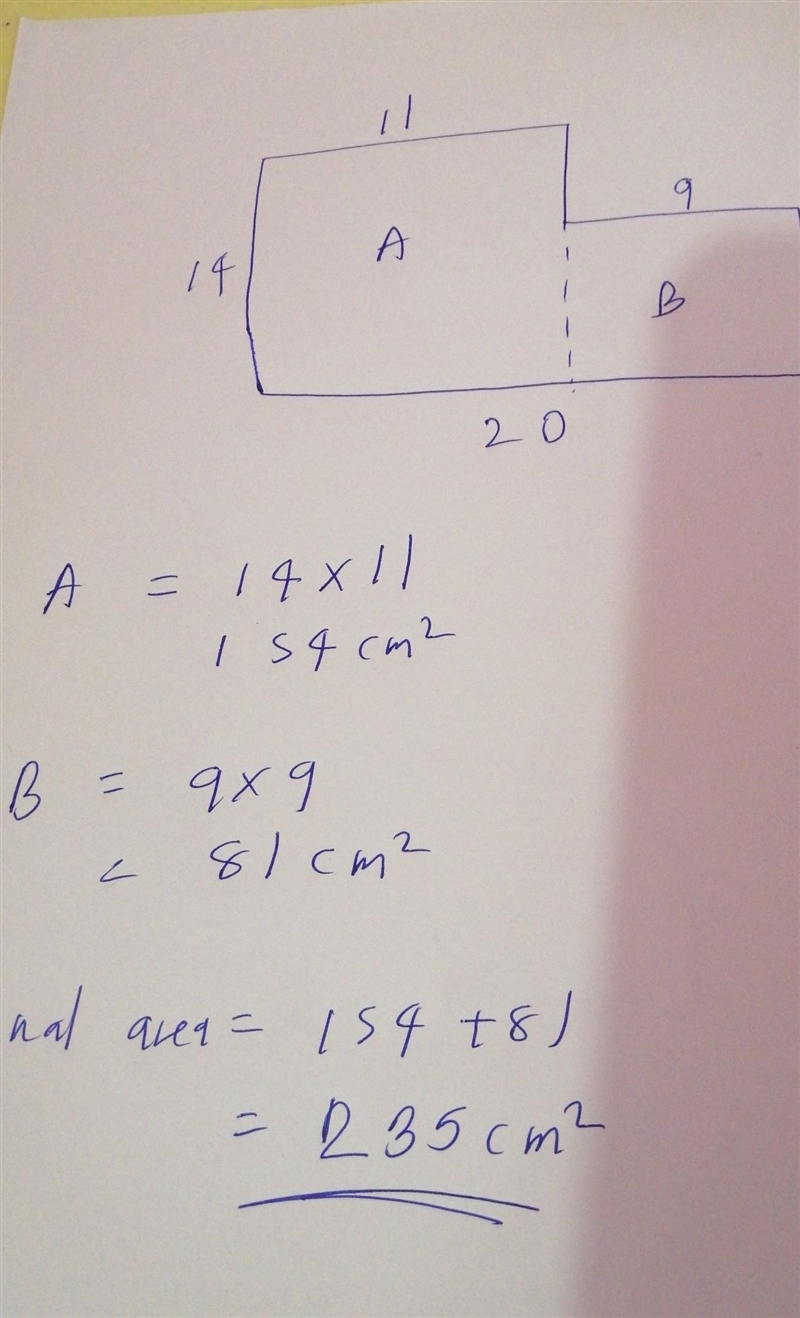 11
9
A
14
B
20
A = 14 x 11
154 cm²
B = 9 x 9
< 81 cm²
nal area = 154 + 81
= 235 cm²